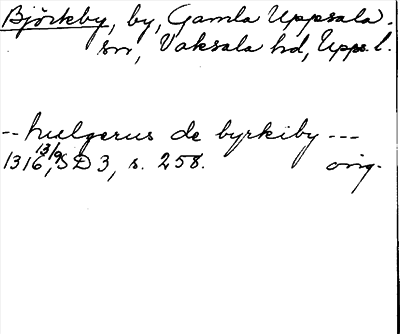 Björkby, by, Gamla Uppsala
sn, Vaksala hd, Upps. l.
-- hulgerus de byrkiby ---
1316 13/9, SD 3, s. 258. orig.